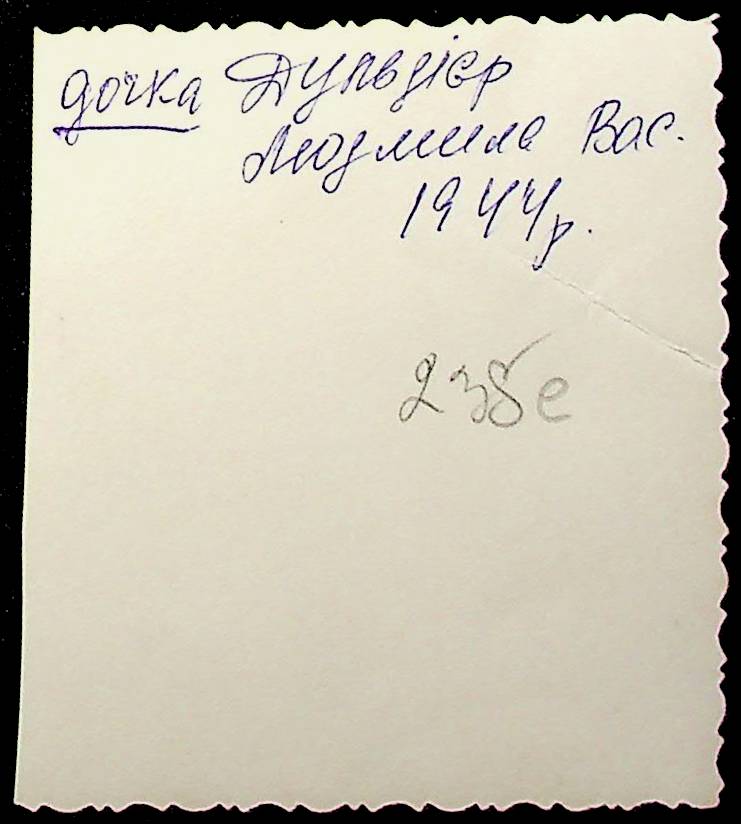 дочка Дульдієр
Людмила Вас.
1944р.
235е